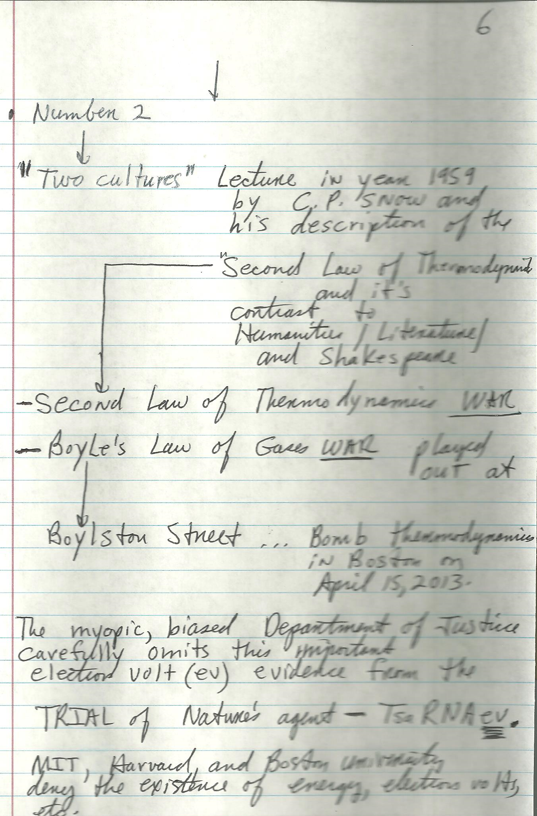 6
Number 2
"Two cultures" Lecture in year 1959
by C.P. Snow and
his description of the
"Second Law of Thermodynamics
and it's
contrast to
Humanities / Literature/
and Shakespeare
-Second Law of Thermodynamics WAR
- Boyle's Law of Gases WAR played
out at
Boylston Street ... Bomb thermodynamics
in Boston on
April 15, 2013.
The myopic, biased Department of Justice
carefully omits this important
electron volt (ev) evidence from the
TRIAL of Nature's agent - Tsa RNA ev.
MIT, Harvard, and Boston university
deny the existence of energy, electron volts,
etc.